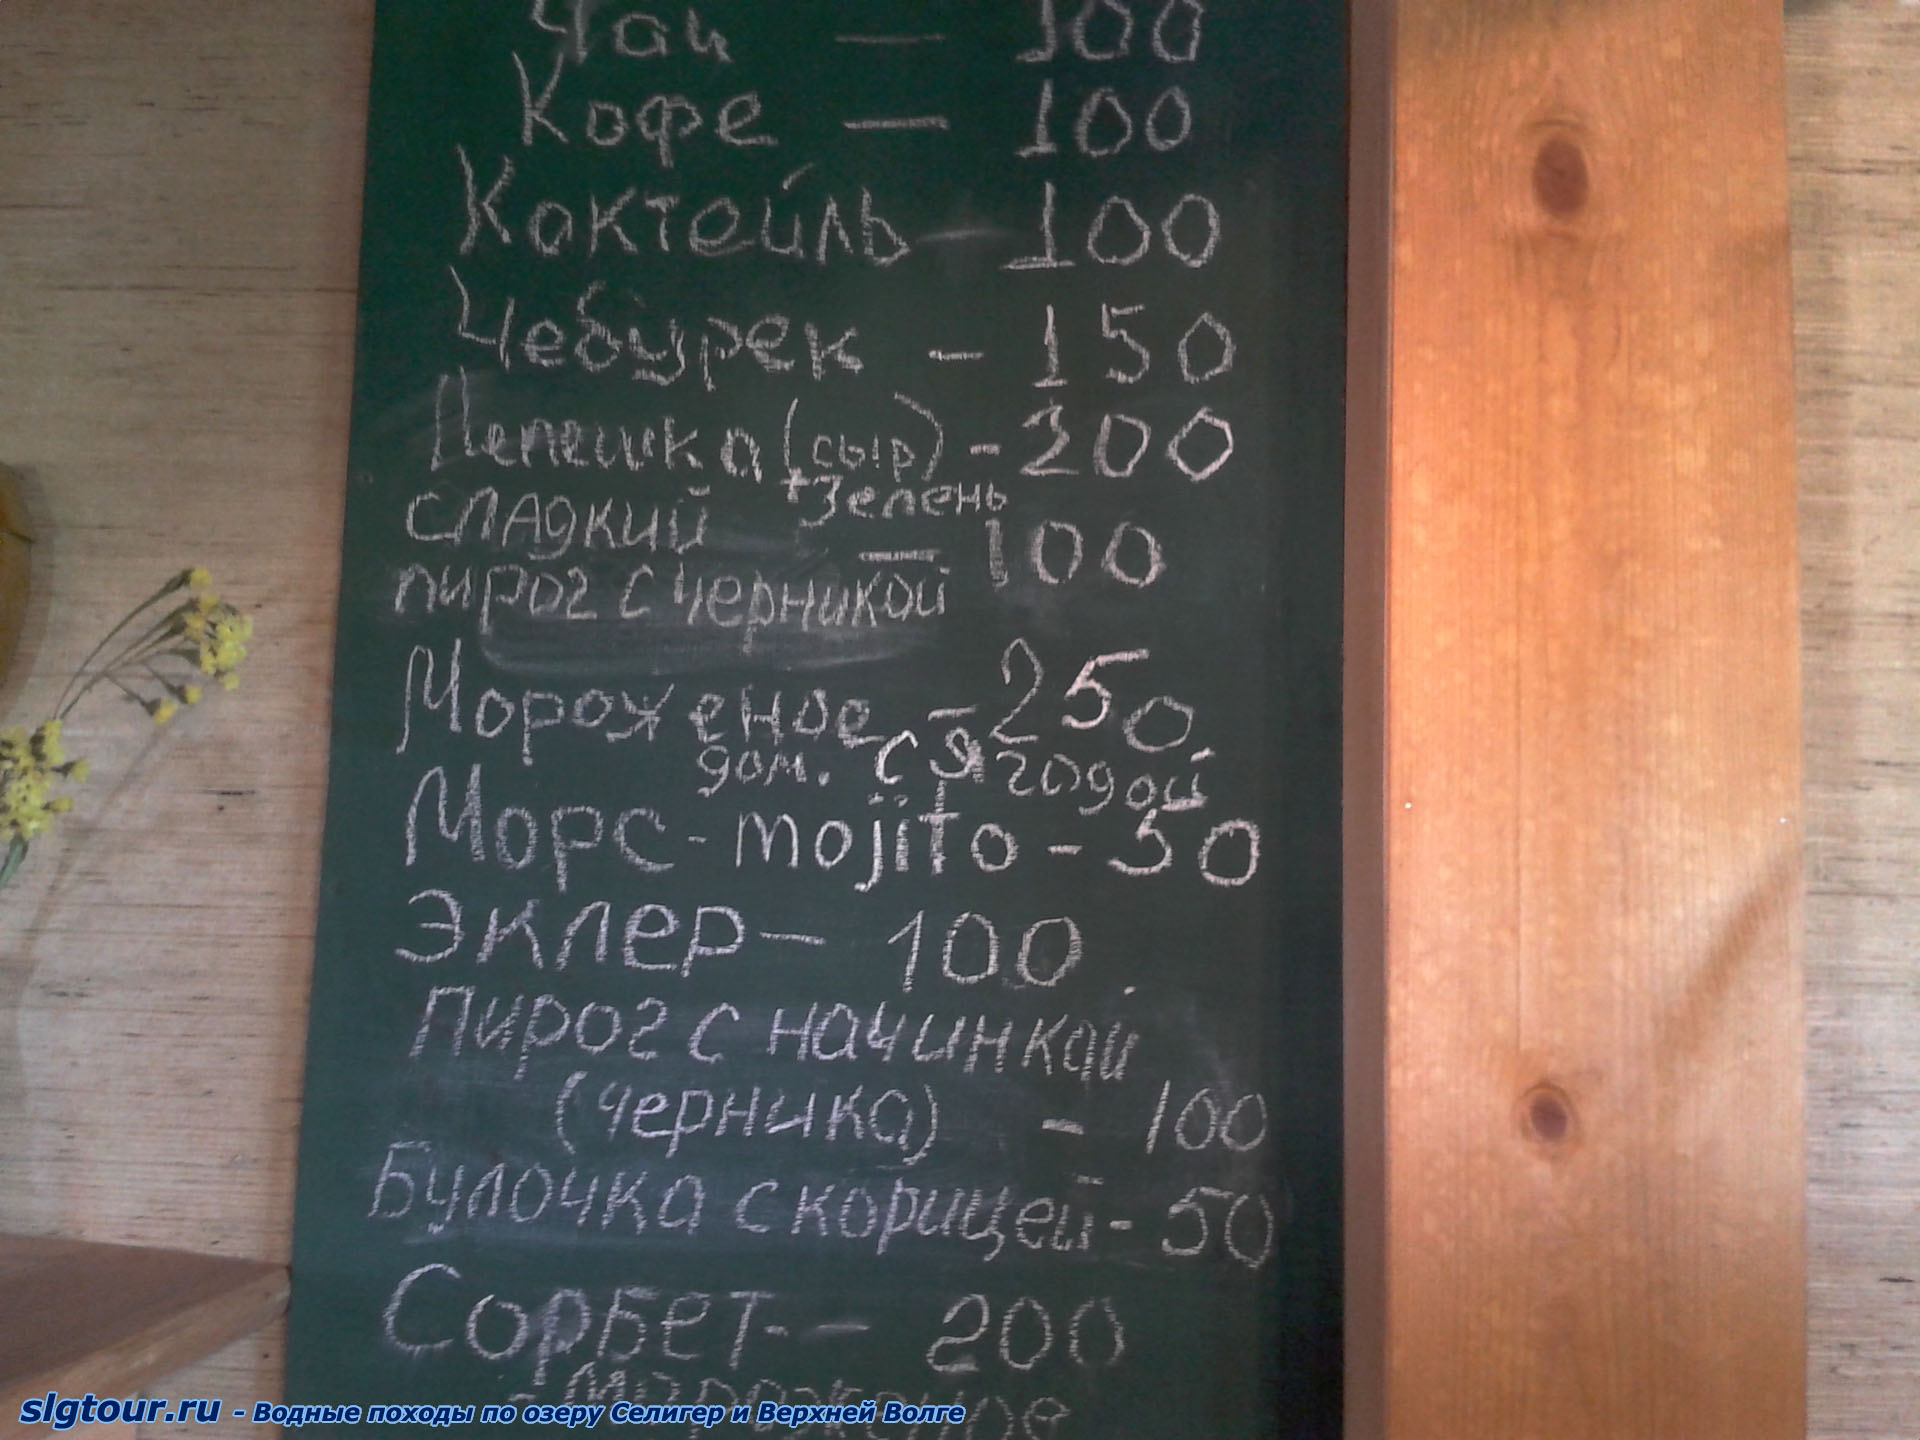 Чай — 100
Кофе — 100
Коктейль — 100
Чебурек - 150
Лепешка (сыр) - 200
+ зелень
сладкий
— 100
пирог с черникой
Мороженое - 250
дом. с ягодой
Морс - mojito - 50
Эклер — 100
Пирог с начинкой
(черника) - 100
Булочка с корицей - 50
Сорбет - — 200
мороженое
slgtour.ru - Водные походы по озеру Селигер и Верхней Волге